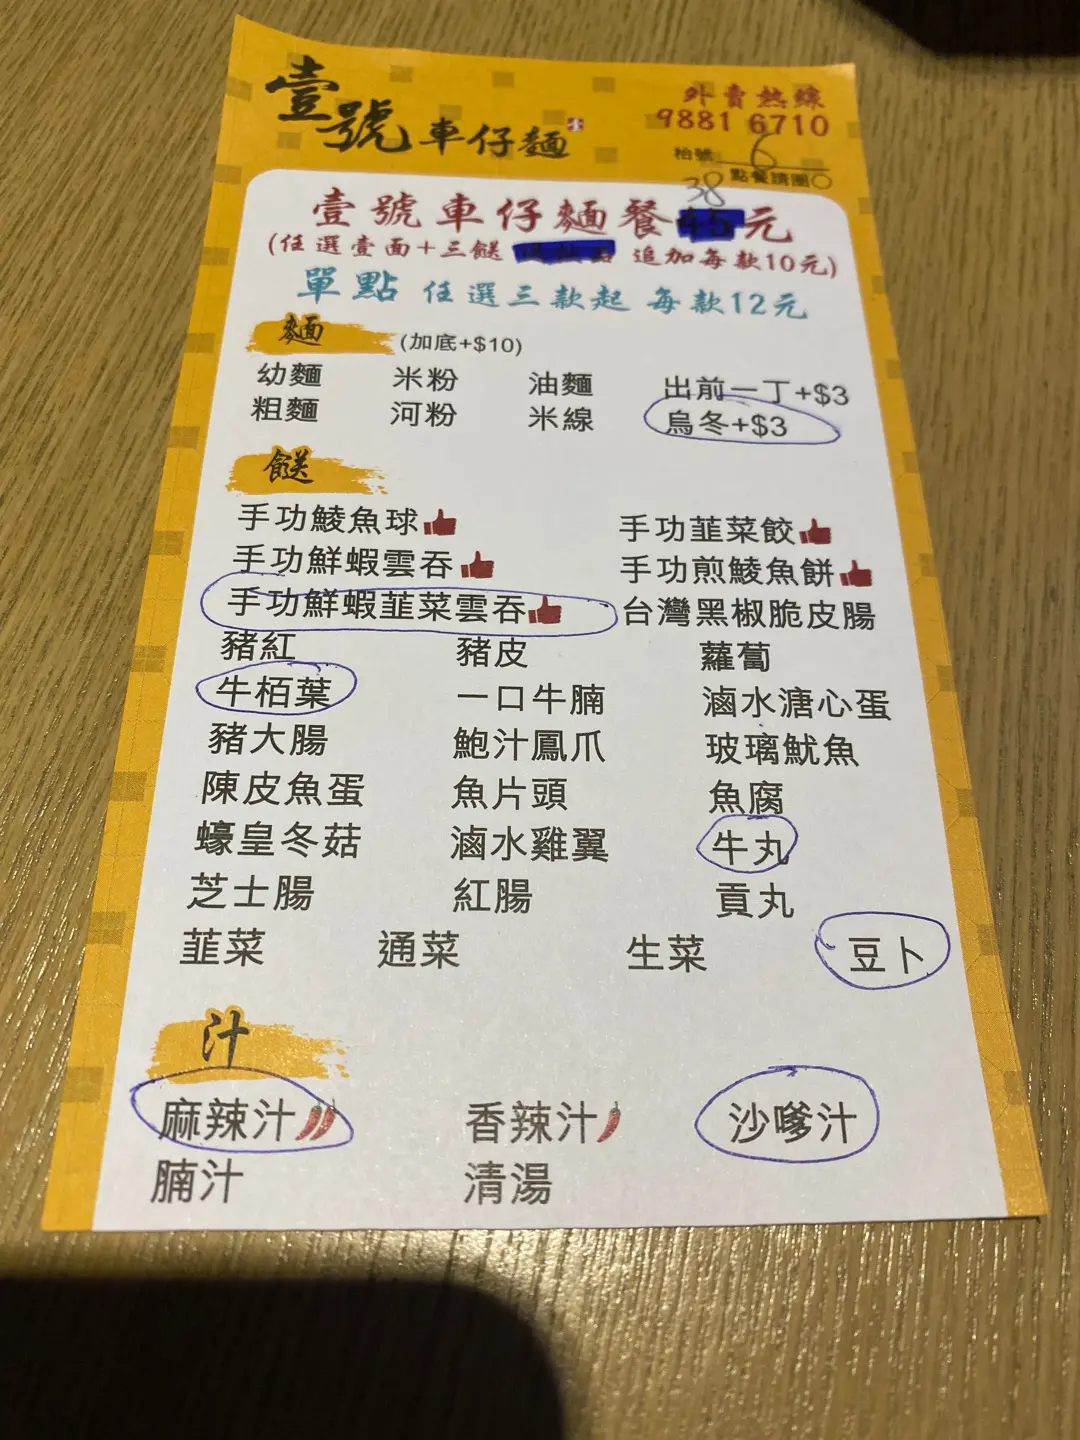 壹號車仔麵
外賣熱線
9881 6710
枱號 6
點餐請圈○
38
壹號車仔麵餐45元
(任選壹面+三餸 追加每款10元)
單點 任選三款起 每款12元
麵 (加底+$10)
幼麵 米粉 油麵 出前一丁+$3
粗麵 河粉 米線 烏冬+$3
餸
手功鯪魚球 手功韮菜餃
手功鮮蝦雲吞 手功煎鯪魚餅
手功鮮蝦韮菜雲吞 台灣黑椒脆皮腸
豬紅 豬皮 蘿蔔
牛栢葉 一口牛腩 滷水溏心蛋
豬大腸 鮑汁鳳爪 玻璃魷魚
陳皮魚蛋 魚片頭 魚腐
蠔皇冬菇 滷水雞翼 牛丸
芝士腸 紅腸 貢丸
韮菜 通菜 生菜 豆卜
汁
麻辣汁 香辣汁 沙嗲汁
腩汁 清湯